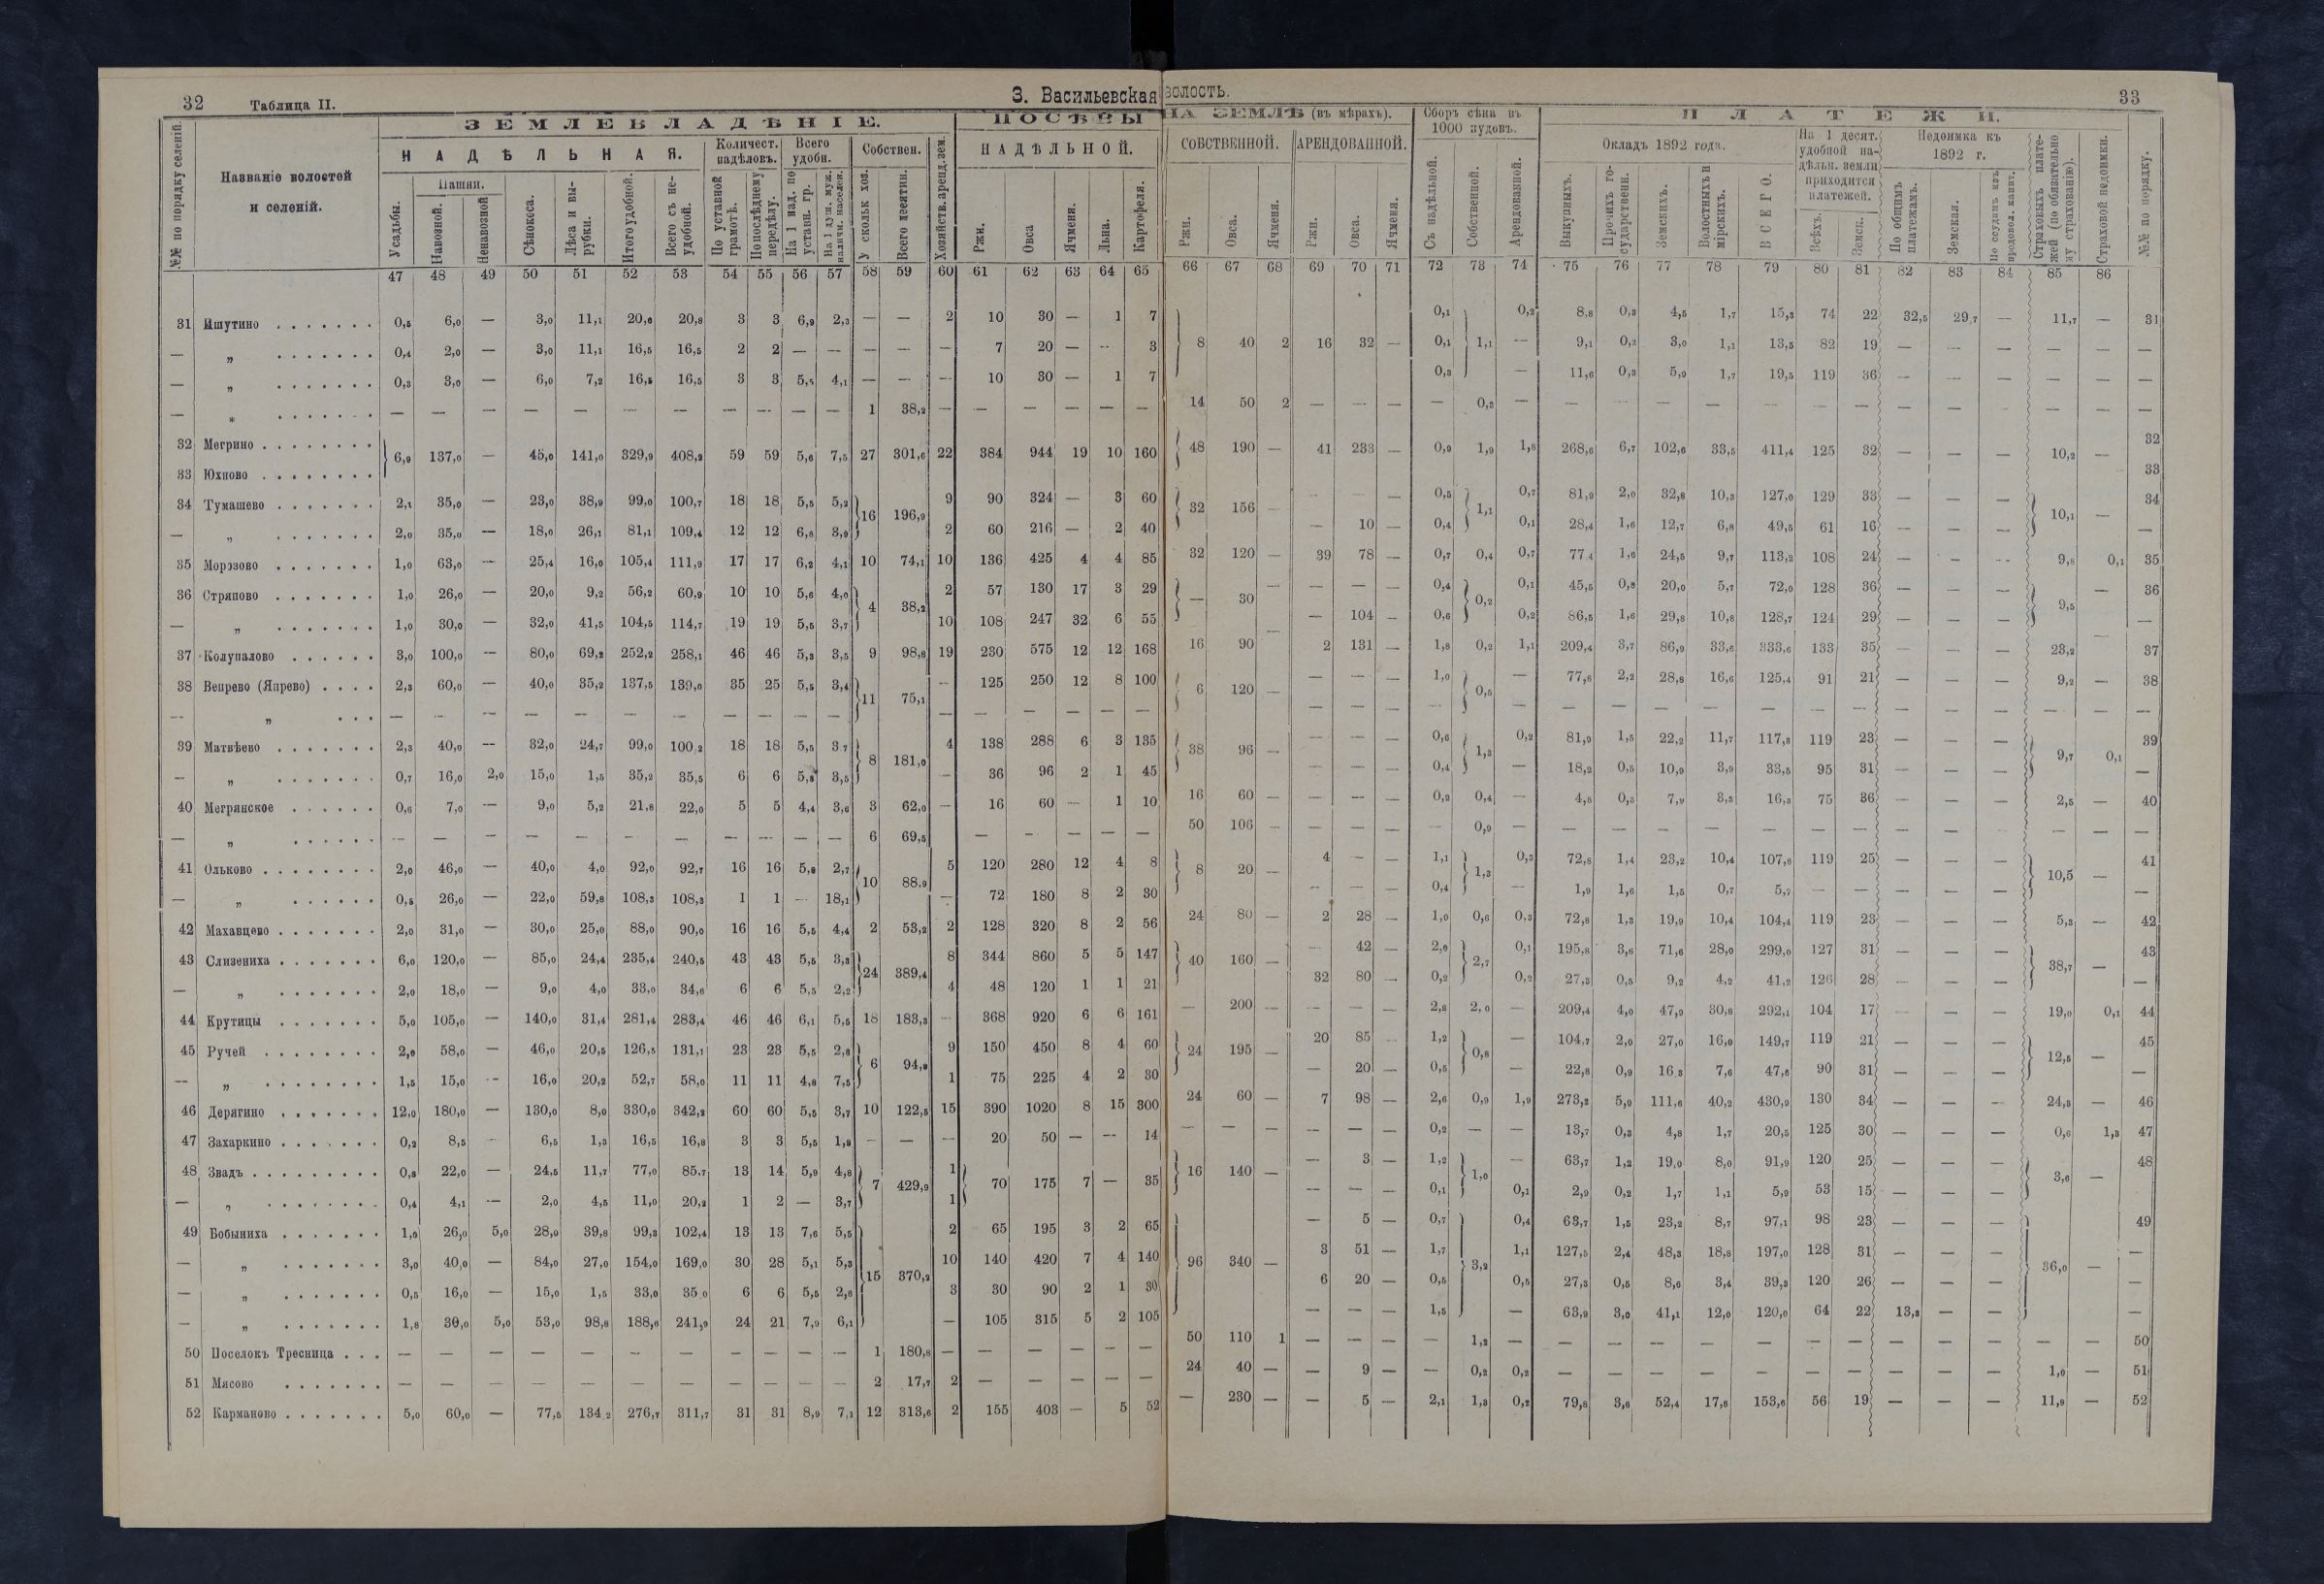 32 Таблица II. 3. Васильевская волость. 33
ЗЕМЛЕВЛАДѢНІЕ. ПОСѢВЫ НА ЗЕМЛѢ (въ мѣрахъ). Сборъ сѣна въ 1000 пудовъ. ПЛАТЕЖИ.
№№ по порядку селеній. Названіе волостей и селеній. НАДѢЛЬНАЯ. Количест. надѣловъ. Всего удобн. Собствен. Хозяйств. аренд. зем. НАДѢЛЬНОЙ. СОБСТВЕННОЙ. АРЕНДОВАННОЙ. Окладъ 1892 года. На 1 десят. удобной надѣльн. земли приходится платежей. Недоимка къ 1892 г. Страховыхъ платежей (по обязательному страхованію). Страховой недоимки. №№ по порядку.
Усадьбы. Пашни. Навозной. Ненавозной Сѣнокоса. Лѣса и вырубки. Итого удобной. Всего съ неудобной. По уставной грамотѣ. По послѣднему передѣлу. На 1 над. по устанн. гр. На 1 душ. муж. наличн. населен. У скольк хоз. Всего десятин. Ржи. Овса Ячменя. Льна. Картофеля. Ржи. Овса. Ячменя. Ржи. Овса. Ячменя. Съ надѣльной. Собственной. Арендованной. Выкупныхъ. Прочихъ государственн. Земскихъ. Волостныхъ и мірскихъ. ВСЕГО. Всѣхъ. Земск. По общимъ платежамъ. Земская. По ссудамъ изъ продовол. капит.
47 48 49 50 51 52 53 54 55 56 57 58 59 60 61 62 63 64 65 66 67 68 69 70 71 72 73 74 75 76 77 78 79 80 81 82 83 84 85 86
31 Ишутино 0,5 6,0 — 3,0 11,1 20,6 20,8 3 3 6,9 2,3 — — 2 10 30 — 1 7 0,1 0,2 8,8 0,3 4,5 1,7 15,3 74 22 32,5 29,7 — 11,7 — 31
— „ 0,4 2,0 — 3,0 11,1 16,5 16,5 2 2 — — — — — 7 20 — — 3 8 40 2 16 32 — 0,1 1,1 — 9,1 0,2 3,0 1,1 13,5 82 19 — — — — —
— „ 0,3 3,0 — 6,0 7,2 16,5 16,5 3 3 5,5 4,1 — — — 10 30 — 1 7 0,3 — 11,6 0,3 5,9 1,7 19,5 119 36 — — — — — —
— „ — — — — — — — — — — — 1 38,2 — — — — — — 14 50 2 — — — — 0,3 — — — — — — — — — — — — — —
32 Мегрино 32
6,9 137,0 — 45,0 141,0 329,9 408,2 59 59 5,6 7,5 27 301,6 22 384 944 19 10 160 48 190 — 41 233 — 0,9 1,9 1,8 268,6 6,7 102,6 33,5 411,4 125 32 — — — 10,2 —
33 Юхново 33
34 Тумашево 2,1 35,0 — 23,0 38,9 99,0 100,7 18 18 5,5 5,2 16 196,9 9 90 324 — 3 60 32 156 — — — — 0,5 1,1 0,7 81,9 2,0 32,8 10,3 127,0 129 33 — — — 10,1 — 34
— „ 2,0 35,0 — 18,0 26,1 81,1 109,4 12 12 6,8 8,9 2 60 216 — 2 40 — 10 — 0,4 0,1 28,4 1,6 12,7 6,8 49,5 61 16 — — — —
35 Морозово 1,0 63,0 — 25,4 16,0 105,4 111,9 17 17 6,2 4,1 10 74,1 10 136 425 4 4 85 32 120 — 39 78 — 0,7 0,4 0,7 77,4 1,6 24,5 9,7 113,2 108 24 — — — 9,8 0,1 35
36 Стряпово 1,0 26,0 — 20,0 9,2 56,2 60,9 10 10 5,6 4,0 4 38,2 2 57 130 17 3 29 — 30 — — — — 0,4 0,2 0,1 45,5 0,8 20,0 5,7 72,0 128 36 — — — 9,5 — 36
— „ 1,0 30,0 — 32,0 41,5 104,5 114,7 19 19 5,5 3,7 10 108 247 32 6 55 — — 104 — 0,6 0,2 86,5 1,6 29,8 10,8 128,7 124 29 — — — — —
37 Колупалово 3,0 100,0 — 80,0 69,2 252,2 258,1 46 46 5,3 3,5 9 98,8 19 230 575 12 12 168 16 90 2 131 — 1,8 0,2 1,1 209,4 3,7 86,9 33,6 333,6 133 35 — — — 23,2 37
38 Вепрево (Япрево) 2,3 60,0 — 40,0 35,2 137,5 139,0 35 25 5,5 3,4 11 75,1 — 125 250 12 8 100 6 120 — — — — 1,0 0,5 — 77,8 2,2 28,8 16,6 125,4 91 21 — — — 9,2 — 38
— „ — — — — — — — — — — — — — — — — — — — — — — — — — — — — — — — — — — —
39 Матвѣево 2,3 40,0 — 32,0 24,7 99,0 100,2 18 18 5,5 3,7 8 181,0 4 138 288 6 3 135 38 96 — — — — 0,6 1,3 0,2 81,9 1,5 22,2 11,7 117,3 119 23 — — — 9,7 0,1 39
— „ 0,7 16,0 2,0 15,0 1,5 35,2 35,5 6 6 5,8 3,5 — 36 96 2 1 45 — — — 0,4 — 18,2 0,5 10,9 3,9 33,5 95 31 — — — —
40 Мегрянское 0,6 7,0 — 9,0 5,2 21,8 22,0 5 5 4,4 3,6 3 62,0 — 16 60 — 1 10 16 60 — — — — 0,2 0,4 — 4,5 0,5 7,9 3,3 16,3 75 36 — — — 2,5 — 40
— „ — — — — — — — — — — — 6 69,5 — — — — — 50 106 — — — — — 0,9 — — — — — — — — — — — — — —
41 Ольково 2,0 46,0 — 40,0 4,0 92,0 92,7 16 16 5,8 2,7 10 88,9 5 120 280 12 4 8 8 20 — 4 — — 1,1 1,3 0,3 72,8 1,4 23,2 10,4 107,8 119 25 — — — 10,5 — 41
— „ 0,5 26,0 — 22,0 59,8 108,3 108,3 1 1 — 18,1 — 72 180 8 2 30 — — — 0,4 — 1,9 1,6 1,5 0,7 5,7 — — — — — —
42 Махавцево 2,0 31,0 — 30,0 25,0 88,0 90,0 16 16 5,5 4,4 2 53,2 2 128 320 8 2 56 24 80 — 2 28 — 1,0 0,6 0,3 72,8 1,3 19,9 10,4 104,4 119 23 — — — 5,3 — 42
43 Слизениха 6,0 120,0 — 85,0 24,4 235,4 240,5 43 43 5,5 3,3 24 389,4 8 344 860 5 5 147 40 160 — — 42 — 2,0 2,7 0,1 195,8 3,6 71,6 28,0 299,0 127 31 — — — 38,7 — 43
— „ 2,0 18,0 — 9,0 4,0 33,0 34,6 6 6 5,5 2,2 4 48 120 1 1 21 32 80 — 0,2 0,2 27,3 0,5 9,2 4,2 41,2 126 28 — — — —
44 Крутицы 5,0 105,0 — 140,0 31,4 281,4 283,4 46 46 6,1 5,5 18 183,3 — 368 920 6 6 161 — 200 — — — — 2,8 2,0 — 209,4 4,0 47,9 30,8 292,1 104 17 — — — 19,0 0,1 44
45 Ручей 2,0 58,0 — 46,0 20,5 126,5 131,1 23 23 5,5 2,8 6 94,8 9 150 450 8 4 60 24 195 — 20 85 — 1,2 0,8 — 104,7 2,0 27,0 16,0 149,7 119 21 — — — 12,5 — 45
— „ 1,5 15,0 — 16,0 20,2 52,7 58,0 11 11 4,8 7,5 1 75 225 4 2 30 — 20 — 0,5 — 22,8 0,9 16,3 7,6 47,6 90 31 — — — —
46 Дерягино 12,0 180,0 — 130,0 8,0 330,0 342,2 60 60 5,5 3,7 10 122,5 15 390 1020 8 15 300 24 60 — 7 98 — 2,6 0,9 1,9 273,2 5,9 111,6 40,2 430,9 130 34 — — — 24,8 — 46
47 Захаркино 0,2 8,5 — 6,5 1,3 16,5 16,8 3 3 5,5 1,8 — — — 20 50 — — 14 — — — — — — 0,2 — — 13,7 0,3 4,8 1,7 20,5 125 30 — — — 0,6 1,3 47
48 Звадъ 0,8 22,0 — 24,5 11,7 77,0 85,7 13 14 5,9 4,8 7 429,9 1 70 175 7 — 35 16 140 — — 3 — 1,2 1,0 — 63,7 1,2 19,0 8,0 91,9 120 25 — — — 3,6 — 48
— „ 0,4 4,1 — 2,0 4,5 11,0 20,2 1 2 — 3,7 1 — — — 0,1 0,1 2,9 0,2 1,7 1,1 5,9 53 15 — — —
49 Бобыниха 1,0 26,0 5,0 28,0 39,8 99,3 102,4 13 13 7,6 5,5 2 65 195 3 2 65 — 5 — 0,7 0,4 63,7 1,5 23,2 8,7 97,1 98 23 — — — 49
— „ 3,0 40,0 — 84,0 27,0 154,0 169,0 30 28 5,1 5,3 15 370,2 10 140 420 7 4 140 96 340 — 3 51 — 1,7 3,2 1,1 127,5 2,4 48,3 18,8 197,0 128 31 — — — 36,0 — —
— „ 0,5 16,0 — 15,0 1,5 33,0 35,0 6 6 5,5 2,8 3 30 90 2 1 30 6 20 — 0,5 0,5 27,3 0,5 8,6 3,4 39,3 120 26 — — — —
— „ 1,8 30,0 5,0 53,0 98,8 188,6 241,9 24 21 7,9 6,1 — 105 315 5 2 105 — — — 1,5 — 63,9 3,0 41,1 12,0 120,0 64 22 13,8 — — —
50 Поселокъ Тресница — — — — — — — — — — — 1 180,8 — — — — — — 50 110 1 — — — — 1,2 — — — — — — — — — — — — — 50
51 Мясово — — — — — — — — — — — 2 17,7 2 — — — — — 24 40 — — 9 — — 0,2 0,2 — — — — — — — — — — 1,0 — 51
52 Карманово 5,0 60,0 — 77,5 134,2 276,7 311,7 31 31 8,9 7,1 12 313,6 2 155 403 — 5 52 — 230 — — 5 — 2,1 1,3 0,2 79,8 3,6 52,4 17,8 153,6 56 19 — — — 11,9 — 52